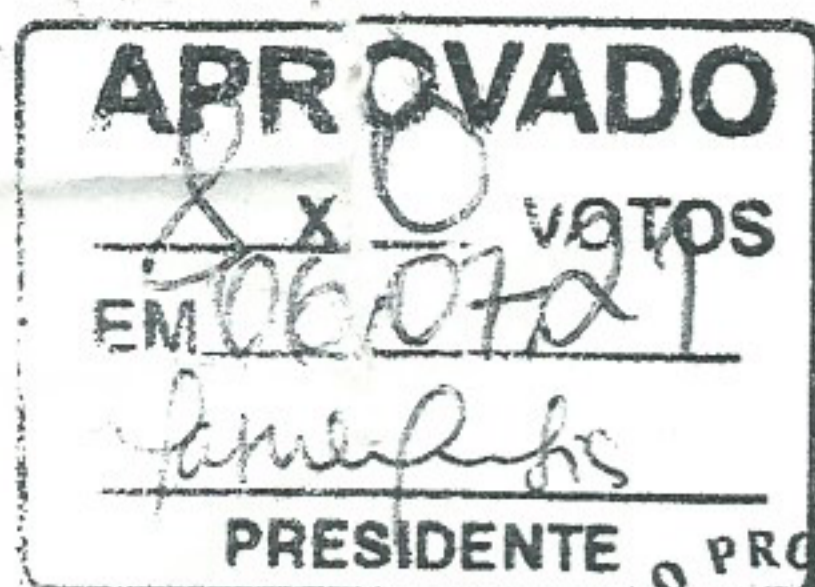 APROVADO
8 X 0 VOTOS
EM 06,07,21
PRESIDENTE
O PRO